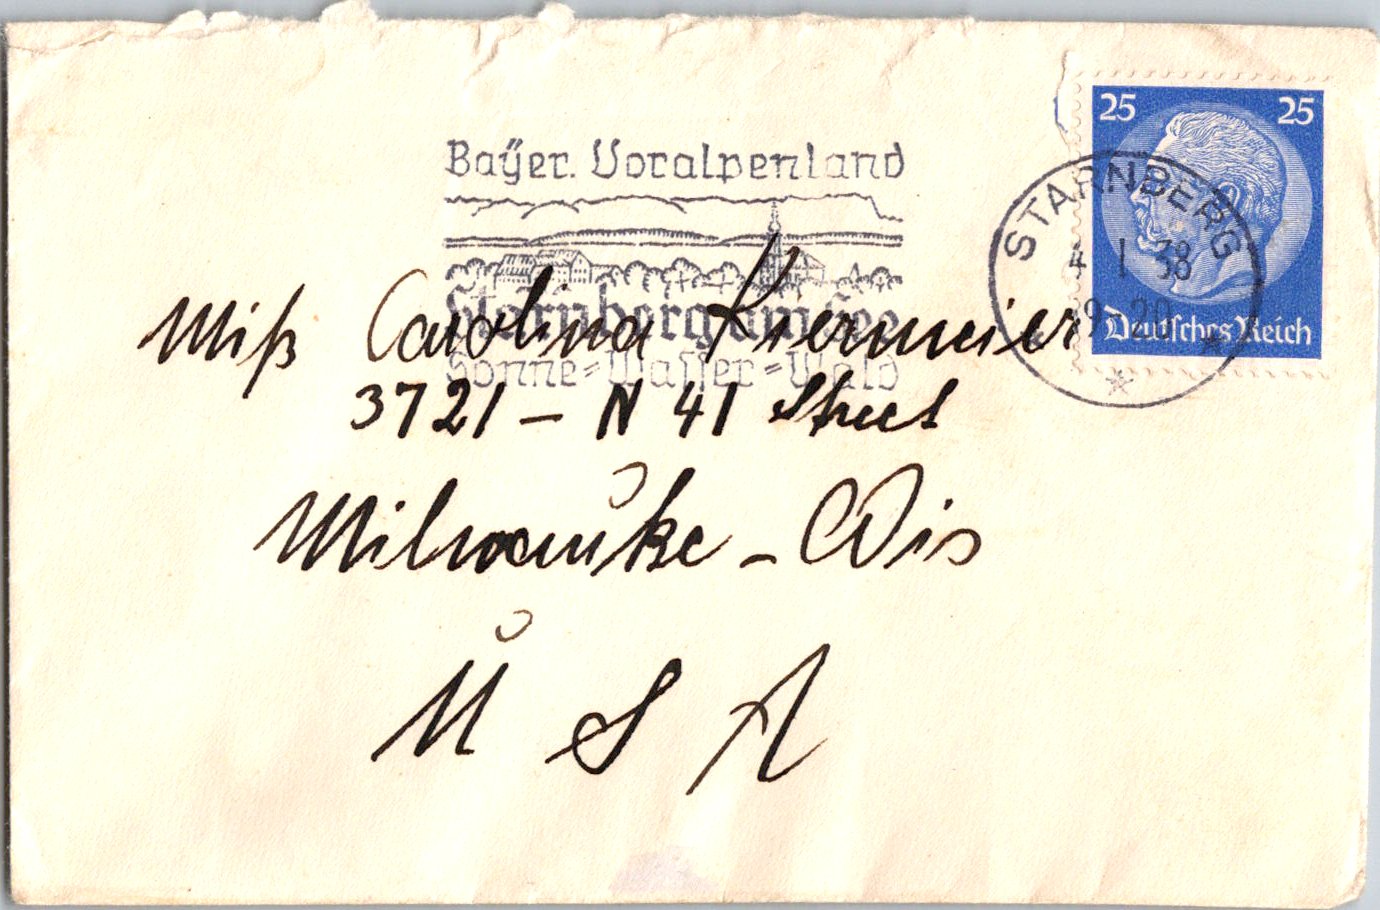 Bayer. Voralpenland
Starnberg am See
Sonne=Wasser=Wald
25 25
Deutsches Reich
STARNBERG
4 1 38
9-20
Miß Carolina Kiermeier
3721 – N 41 Street
Milwauke – Wis
U S A